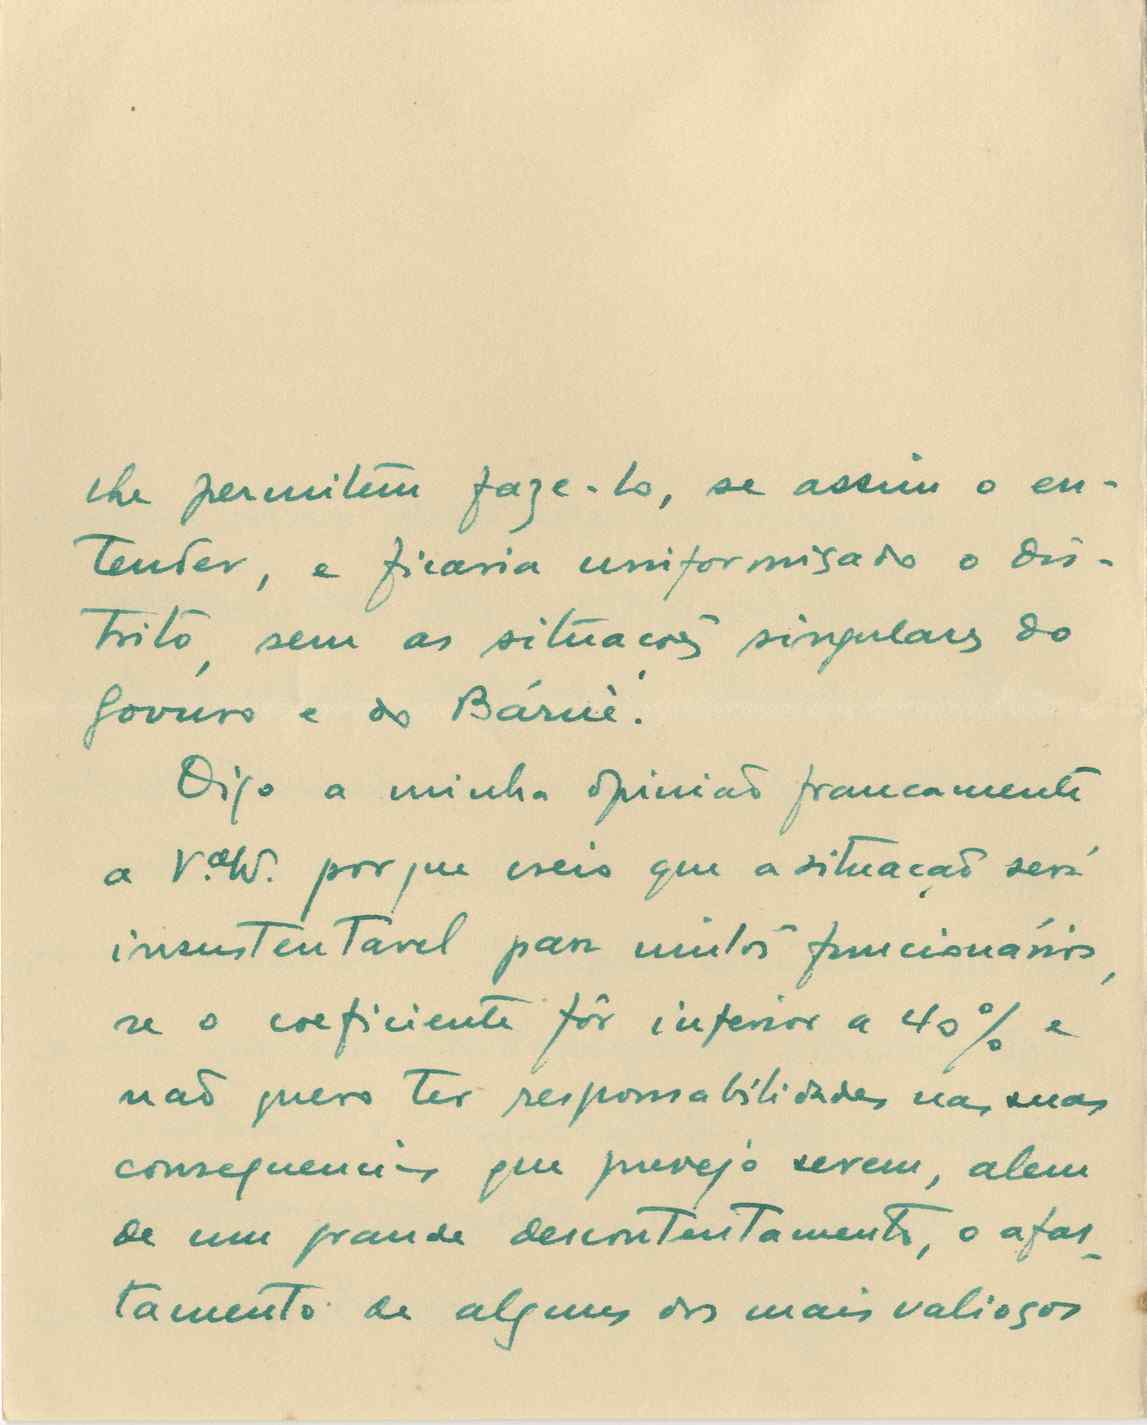 lhe permitem faze-lo, se assim o en-
tender, e ficaria uniformisado o dis-
trito, sem as situações singulares do
Govuro e do Báruè.
Digo a minha opinião francamente
a V.ª porque creio que a situação será
insustentavel para muitos funcionários,
se o coeficiente fôr inferior a 40% e
não quero ter responsabilidades nas suas
consequencias que prevejo serem, alem
de um grande descontentamento, o afas-
tamento de alguns dos mais valiosos